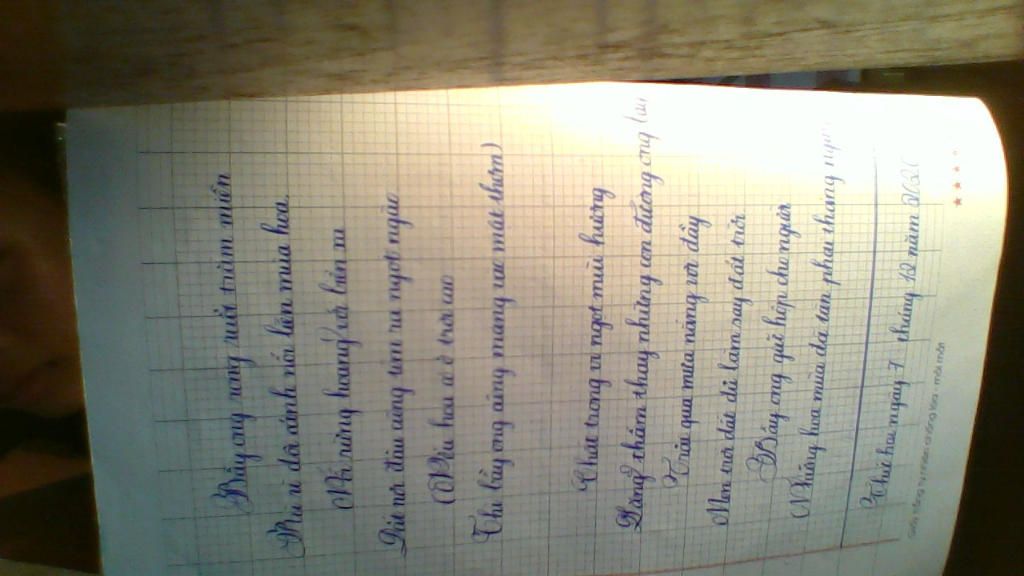 Bầy ong rong ruổi trăm miền
Rù rì đôi cánh nối liền mùa hoa.
Nối rừng hoang với biển xa
Đất nơi đâu cũng tìm ra ngọt ngào
(Nếu hoa có ở trời cao
Thì bầy ong cũng mang vào mật thơm)
Chắt trong vị ngọt mùi hương
Lặng thầm thay những con đường ong bay
Trải qua mưa nắng vơi đầy
Men trời đất đủ làm say đất trời
Bầy ong giữ hộp cho người
Những hoa mùa đã tàn phai tháng
Thứ hai ngày 7 tháng 12 năm
Giấy trắng tự nhiên chống lóa - mỏi mắt